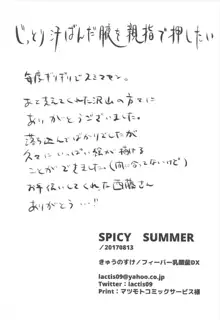 じっとり汗ばんだ腋を親指で押したい
毎度ギリギリでスミマセン。
あと支えてくれた沢山の方々に
ありがとうございました。
落ち込んでばかりでしたが
久々にいっぱい絵が描ける
ことができました。(間に合ってないけど)
お手伝いしてくれた西藤さん
ありがとう…!
SPICY SUMMER
/20170813
きゅうのすけ/フィーバー乳酸菌DX
lactis09@yahoo.co.jp
Twitter : lactis09
Print : マツモトコミックサービス様